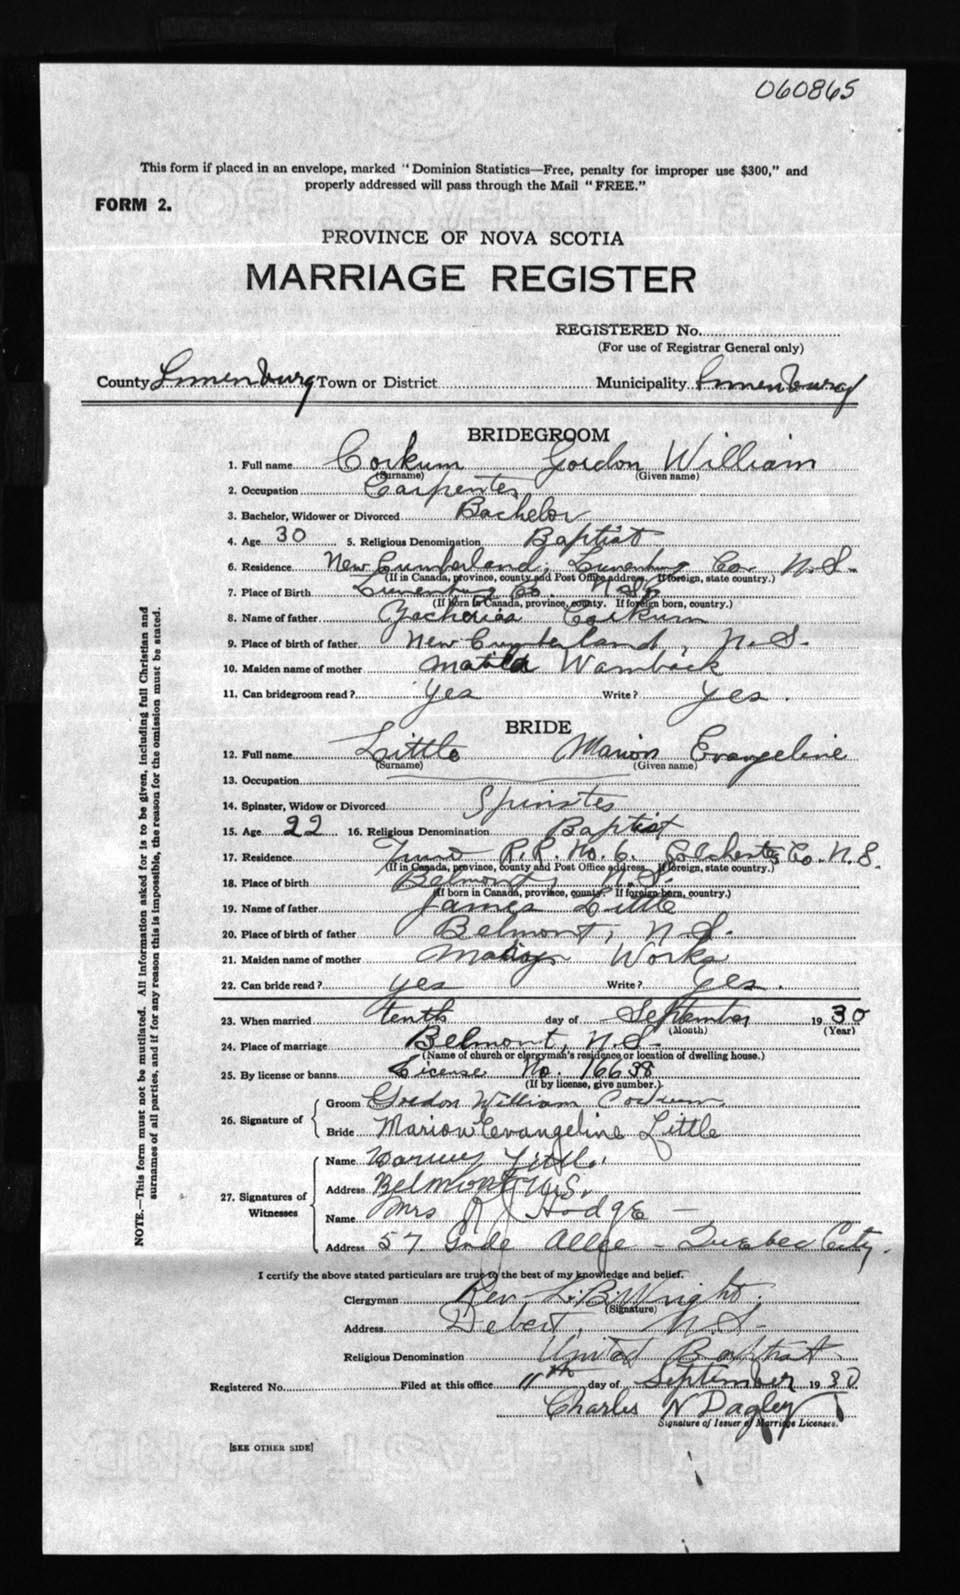 060865
This form if placed in an envelope, marked "Dominion Statistics—Free, penalty for improper use $300," and
properly addressed will pass through the Mail "FREE."
FORM 2.
PROVINCE OF NOVA SCOTIA
MARRIAGE REGISTER
REGISTERED No.
(For use of Registrar General only)
County Lunenburg Town or District Municipality Lunenburg
BRIDEGROOM
1. Full name Corkum Gordon William
(Surname) (Given name)
2. Occupation Carpenter
3. Bachelor, Widower or Divorced Bachelor
4. Age 30 5. Religious Denomination Baptist
6. Residence New Cumberland, Lunenburg Co. N.S.
(If in Canada, province, county and Post Office address. If foreign, state country.)
7. Place of Birth Lunenburg Co. N.S.
(If born in Canada, province, county. If foreign born, country.)
8. Name of father Zacharias Corkum
9. Place of birth of father New Cumberland, N.S.
10. Maiden name of mother Matilda Wamback
11. Can bridegroom read? Yes Write? Yes.
BRIDE
12. Full name Little Marion Evangeline
(Surname) (Given name)
13. Occupation
14. Spinster, Widow or Divorced Spinster
15. Age 22 16. Religious Denomination Baptist
17. Residence R.R. No. 6. Colchester Co. N.S.
(If in Canada, province, county and Post Office address. If foreign, state country.)
18. Place of birth Belmont, N.S.
(If born in Canada, province, county. If foreign born, country.)
19. Name of father James Little
20. Place of birth of father Belmont, N.S.
21. Maiden name of mother Works
22. Can bride read? yes Write? Yes.
23. When married tenth day of September 1930
(Month) (Year)
24. Place of marriage Belmont, N.S.
(Name of church or clergyman's residence or location of dwelling house.)
25. By license or banns. License No. 16638
(If by license, give number.)
26. Signature of
Groom Gordon William Corkum
Bride Marion Evangeline Little
27. Signatures of Witnesses
Name Little
Address Belmont N.S.
Name Mrs R J Hodge
Address 57 Allee - Quebec City.
I certify the above stated particulars are true to the best of my knowledge and belief.
Clergyman Rev. L.B. Wright.
(Signature)
Address Debert, N.S.
Religious Denomination United Baptist
Registered No. Filed at this office 11th day of September 1930
Charles N Dagley
Signature of Issuer of Marriage Licenses.
[SEE OTHER SIDE]
NOTE.—This form must not be mutilated. All information asked for is to be given, including full Christian and
surnames of all parties, and if for any reason this is impossible, the reason for the omission must be stated.